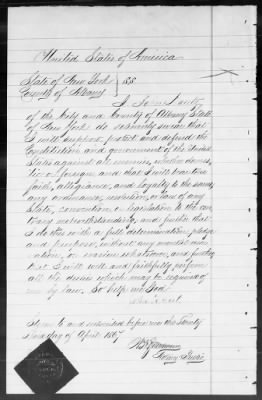 United States of America
State of New York } SS.
County of Albany
I John
of the City and County of Albany State
of New York do solemnly swear that
I will support, protect and defend the
Constitution and government of the United
States against all enemies, whether domes-
tic or foreign and that I will bear true
faith, allegiance, and loyalty to the same,
any ordinance, resolution, or law of any
State, convention, or legislature to the con-
trary notwithstanding, and further that
I do this with a full determination, pledge
and purpose, without any mental reser-
vation, or evasion whatsoever, and further
that I will well and faithfully perform
all the duties which may be required of
me by law. So help me God.
Sworn to and subscribed before me this Twenty
day of April 1867
Notary Public